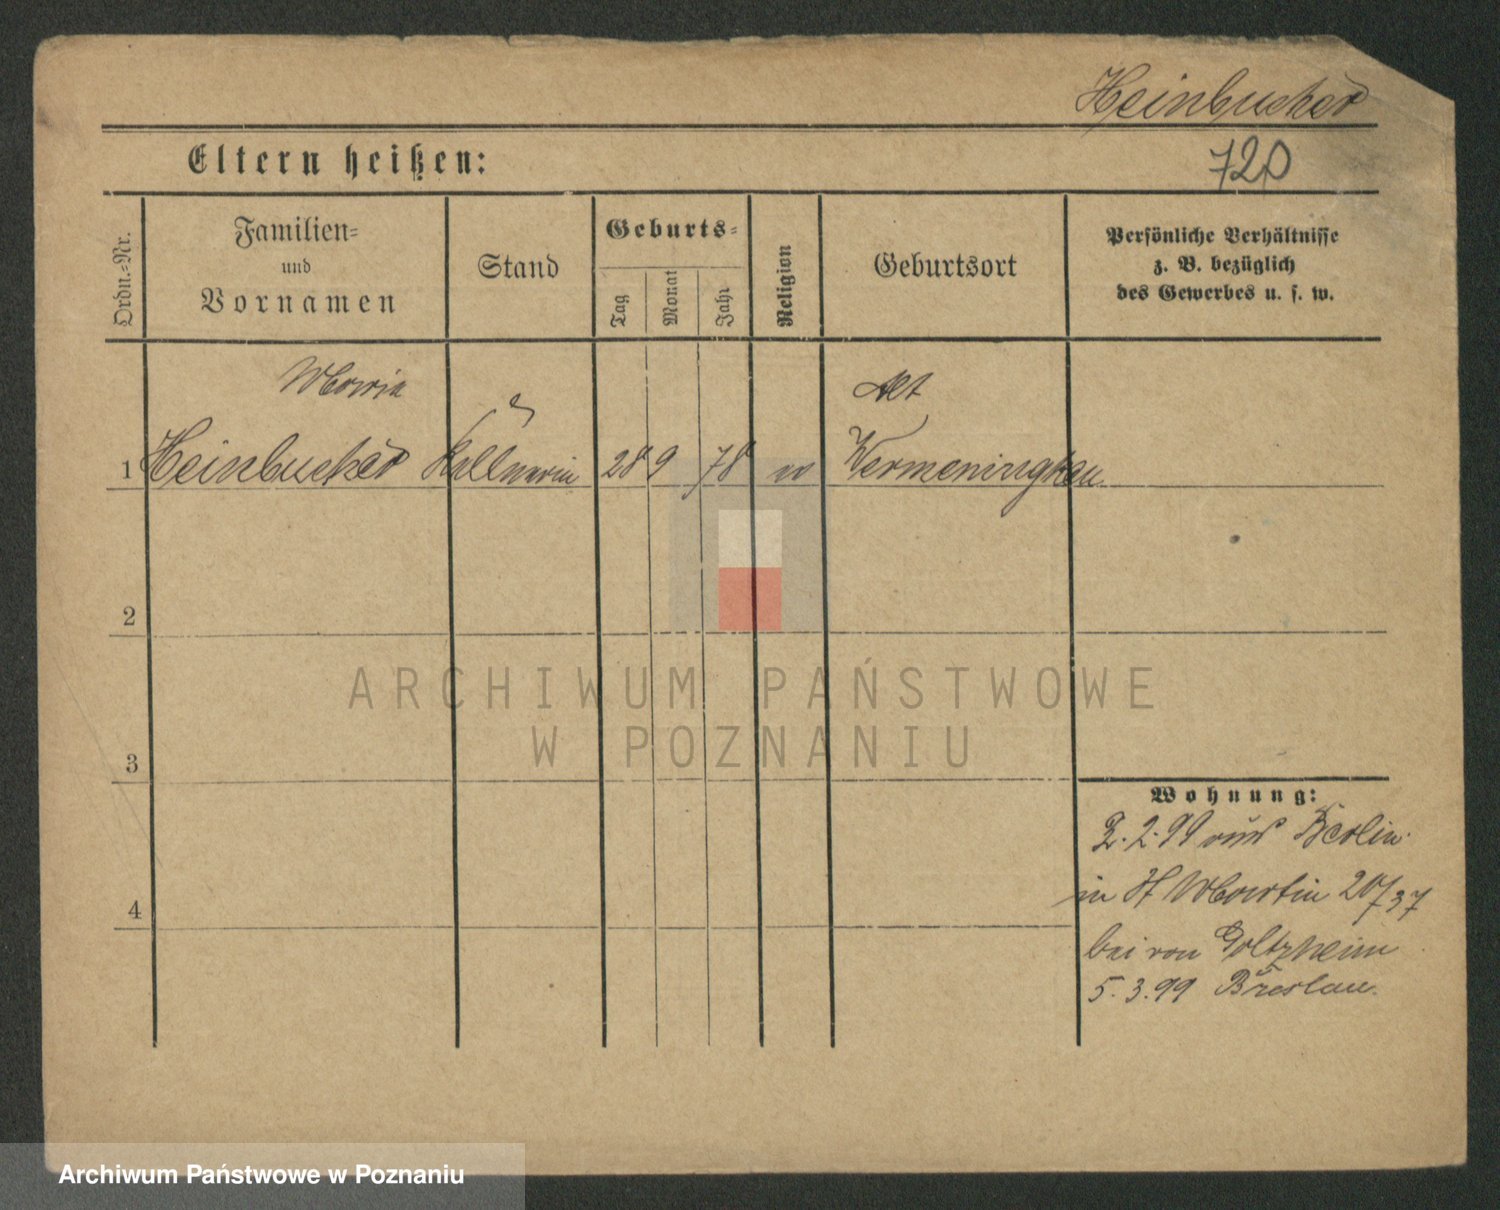 Heinbucher
Eltern heißen:
720
Ordn.-Nr.
Familien-
und
Vornamen
Stand
Geburts-
Tag
Monat
Jahr
Religion
Geburtsort
Persönliche Verhältnisse
z. B. bezüglich
des Gewerbes u. s. w.
Maria
Alt
1 Heinbucher Kellnerin 28 9 78
2
3
4
Wohnung:
2.2.99 aus Berlin
in St Martin 20/37
bei von Goltzheim
5.3.99 Breslau.
ARCHIWUM PAŃSTWOWE
W POZNANIU
Archiwum Państwowe w Poznaniu